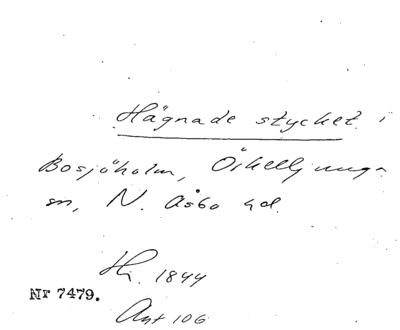 Hägnade stycket i
Bosjöholm, Örkelljunga
sn, N. Åsbo hd.
H. 1844
Nr 7479.
Ant 106